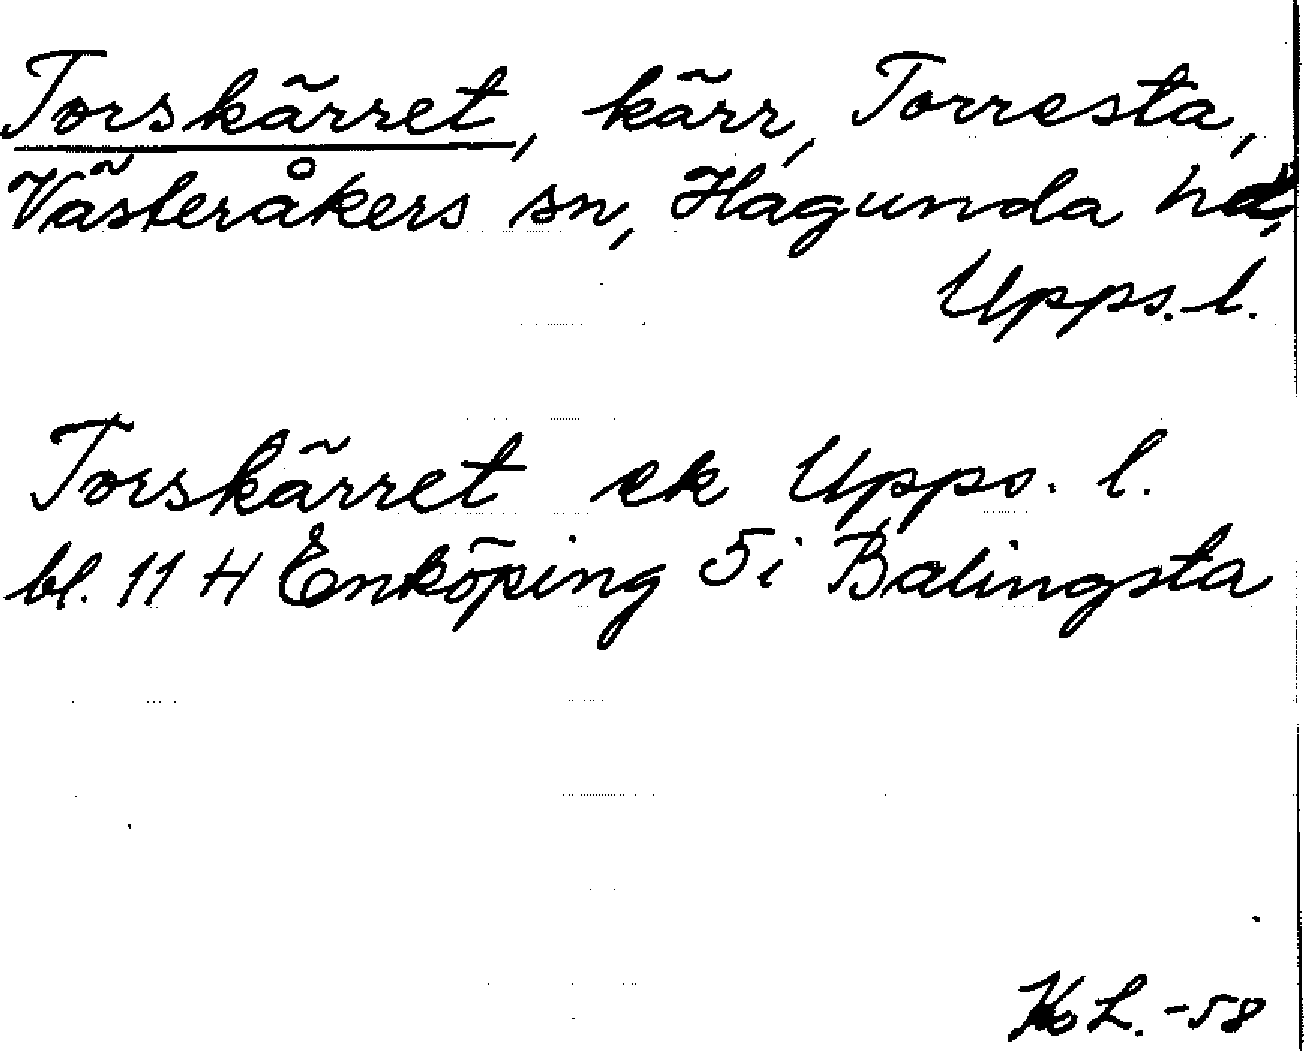 Torskärret, kärr, Torresta,
Västeråkers sn, Hagunda hd,
Upps. l.
Torskärret ek Upps. l.
bl. 11 H Enköping 5i Balingsta
L. -58